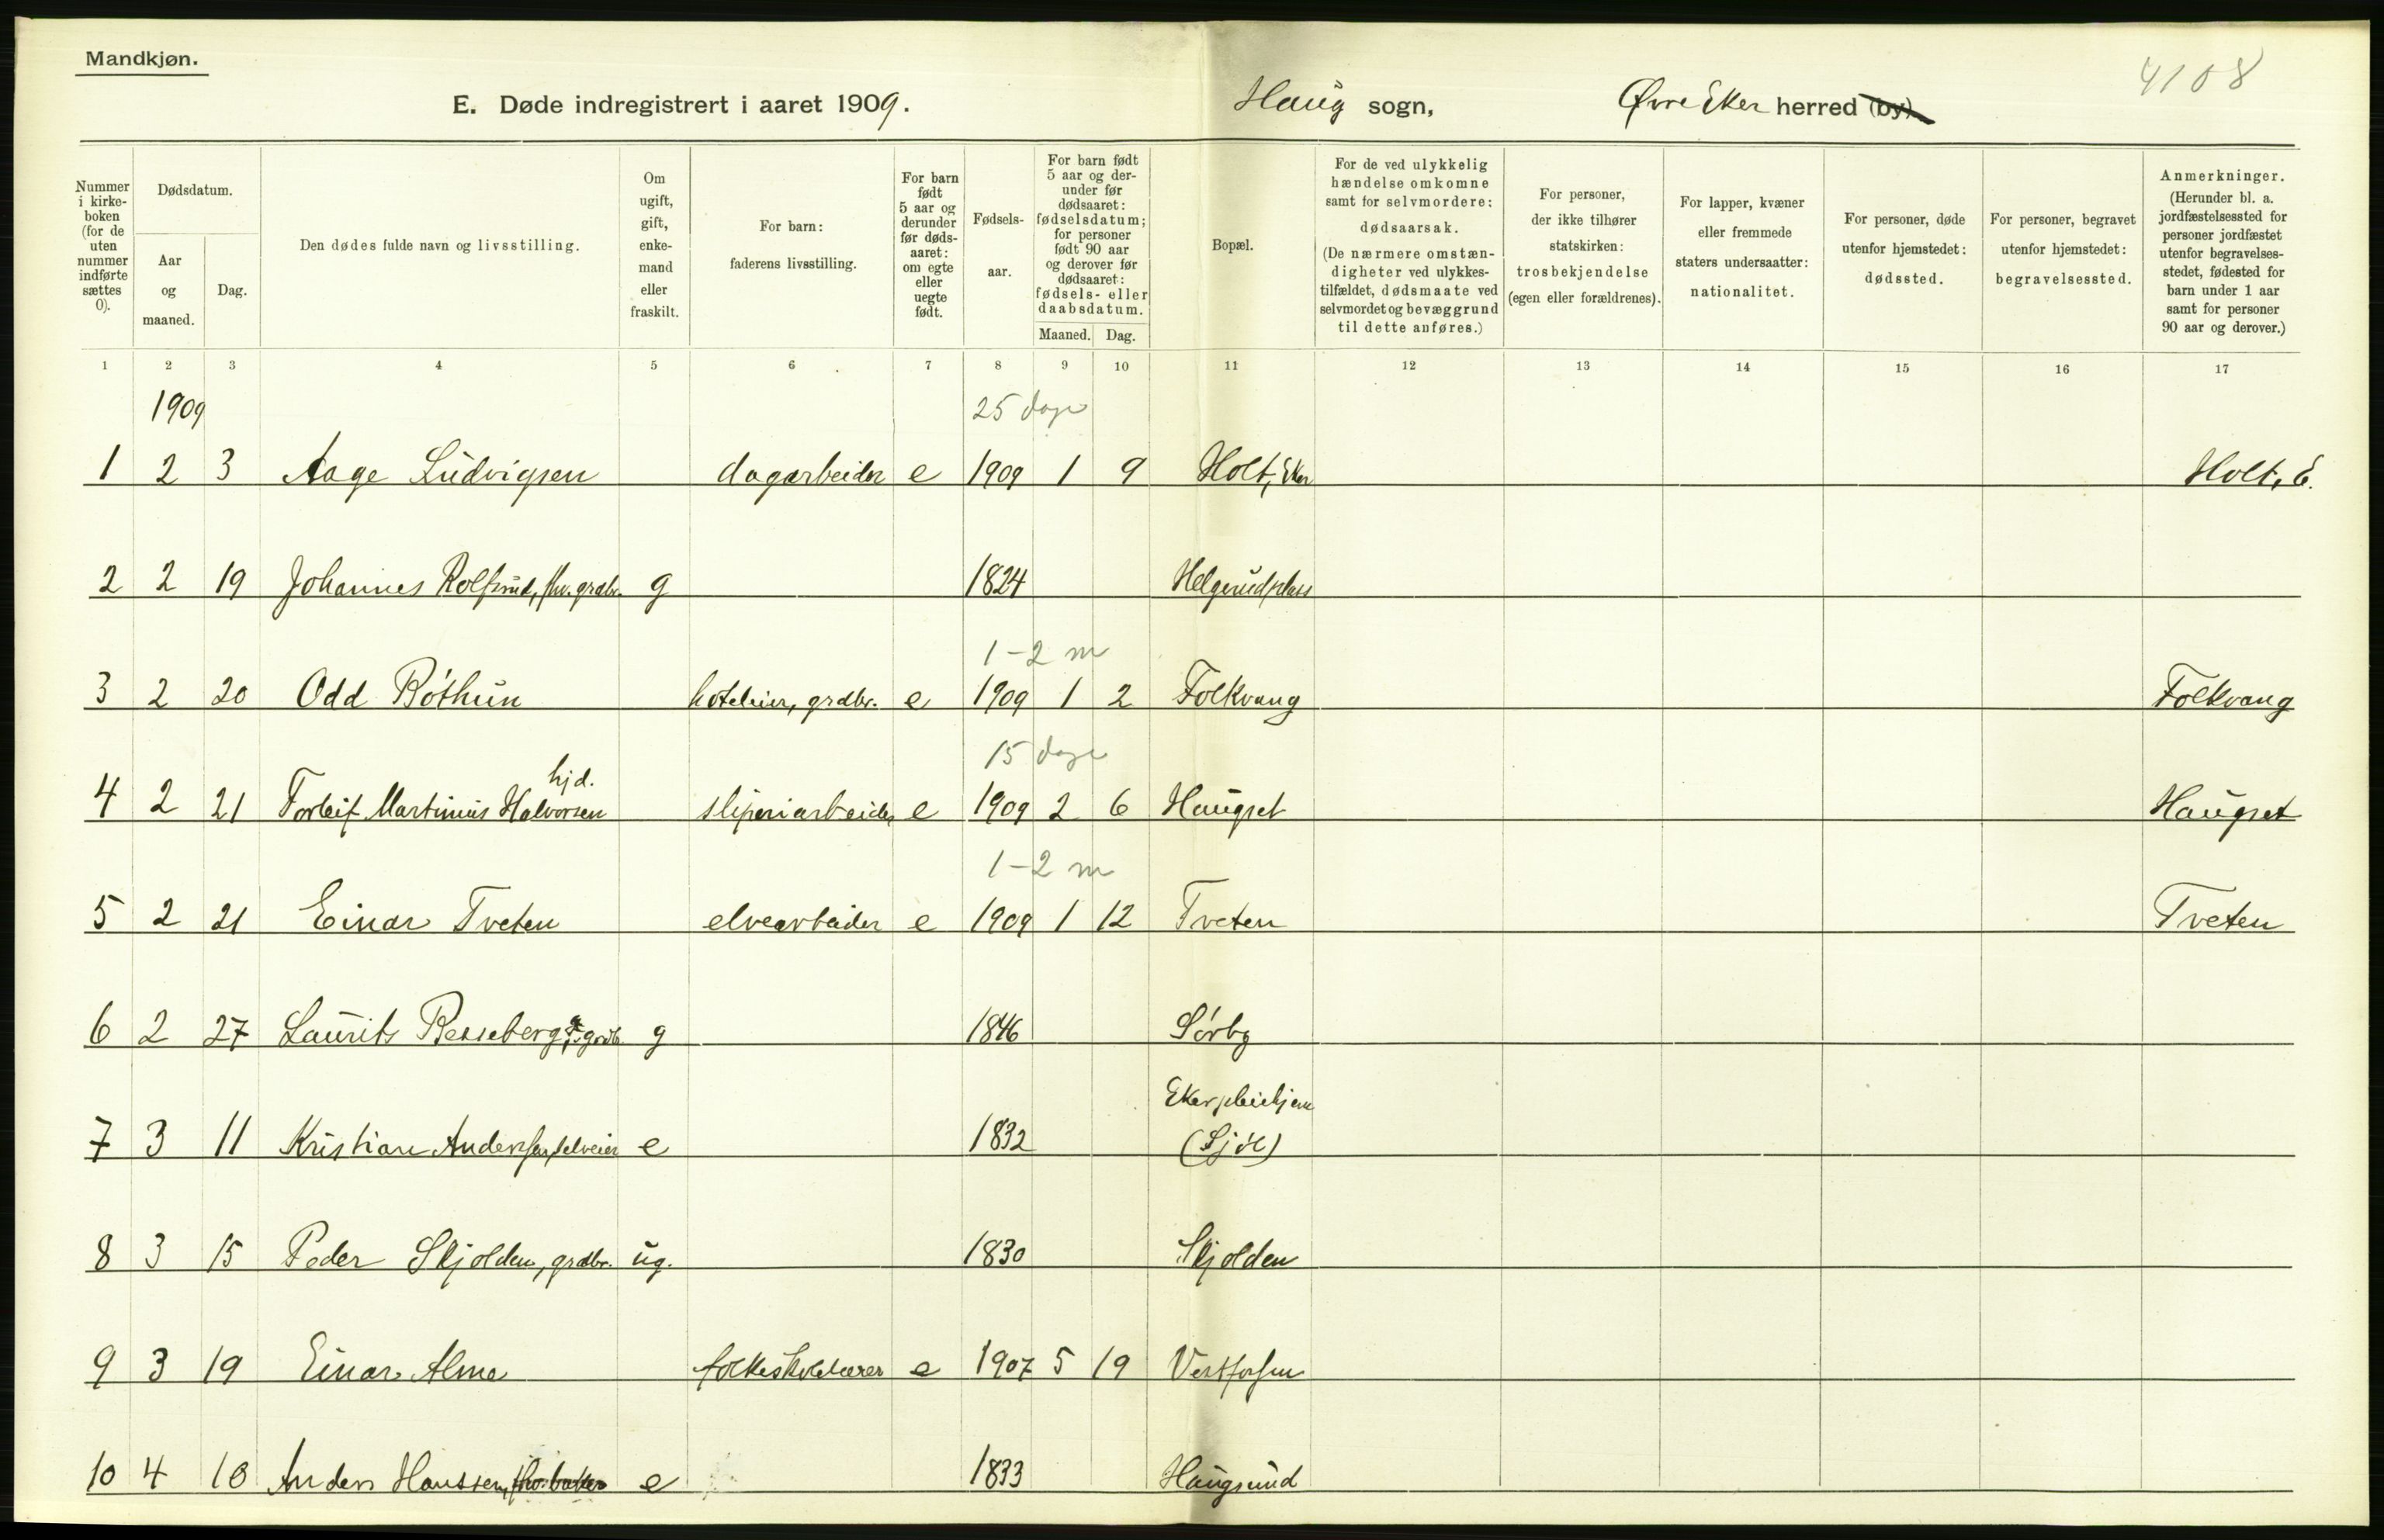 Mandkjøn.
4108
E. Døde indregistrert i aaret 1909.
Haug sogn, Øvre Eker herred (by).
Nummer i kirke-boken (for de uten nummer indførte sættes 0).
Dødsdatum.
Aar og maaned.
Dag.
Den dødes fulde navn og livsstilling.
Om ugift, gift, enke-mand eller fraskilt.
For barn: faderens livsstilling.
For barn født 5 aar og derunder før døds-aaret: om egte eller uegte født.
Fødsels-aar.
For barn født 5 aar og der-under før dødsaaret: fødselsdatum; for personer født 90 aar og derover før dødsaaret: fødsels- eller daabsdatum.
Maaned. Dag.
Bopæl.
For de ved ulykkelig hændelse omkomne samt for selvmordere: dødsaarsak. (De nærmere omstæn-digheter ved ulykkes-tilfældet, dødsmaate ved selvmordet og bevæggrund til dette anføres.)
For personer, der ikke tilhører statskirken: trosbekjendelse (egen eller forældrenes).
For lapper, kvæner eller fremmede staters undersaatter: nationalitet.
For personer, døde utenfor hjemstedet: dødssted.
For personer, begravet utenfor hjemstedet: begravelsessted.
Anmerkninger. (Herunder bl. a. jordfæstelsessted for personer jordfæstet utenfor begravelses-stedet, fødested for barn under 1 aar samt for personer 90 aar og derover.)
1 2 3 4 5 6 7 8 9 10 11 12 13 14 15 16 17
1909 25 dage
1 2 3 Aage Ludvigsen dagarbeider e 1909 1 9 Holt, Eker Holt, E.
2 2 19 Johannes Rolfsrud, fhv. grdbr. g 1824 Helgerudplass
1-2 m
3 2 20 Odd Róthun hoteleier, grdbr. e 1909 1 2 Folkvang Folkvang
hjd. 15 dage
4 2 21 Torleif Martinius Halvorsen sliperiarbeider e 1909 2 6 Haugset Haugset
1-2 m
5 2 21 Einar Tveten elvearbeider e 1909 1 12 Tveten Tveten
6 2 27 Laurits Besseberg, grdb. g 1846 Sórby
Eker pleiehjem
7 3 11 Kristian Andersen, selveier e 1832 (Sjól)
8 3 15 Peder Skjolden, grdbr. ug. 1830 Skjolden
9 3 19 Einar Alme folkeskolelærer e 1907 5 19 Vestfossen
10 4 10 Anders Hanssen, fhv. baker e 1833 Haugsund